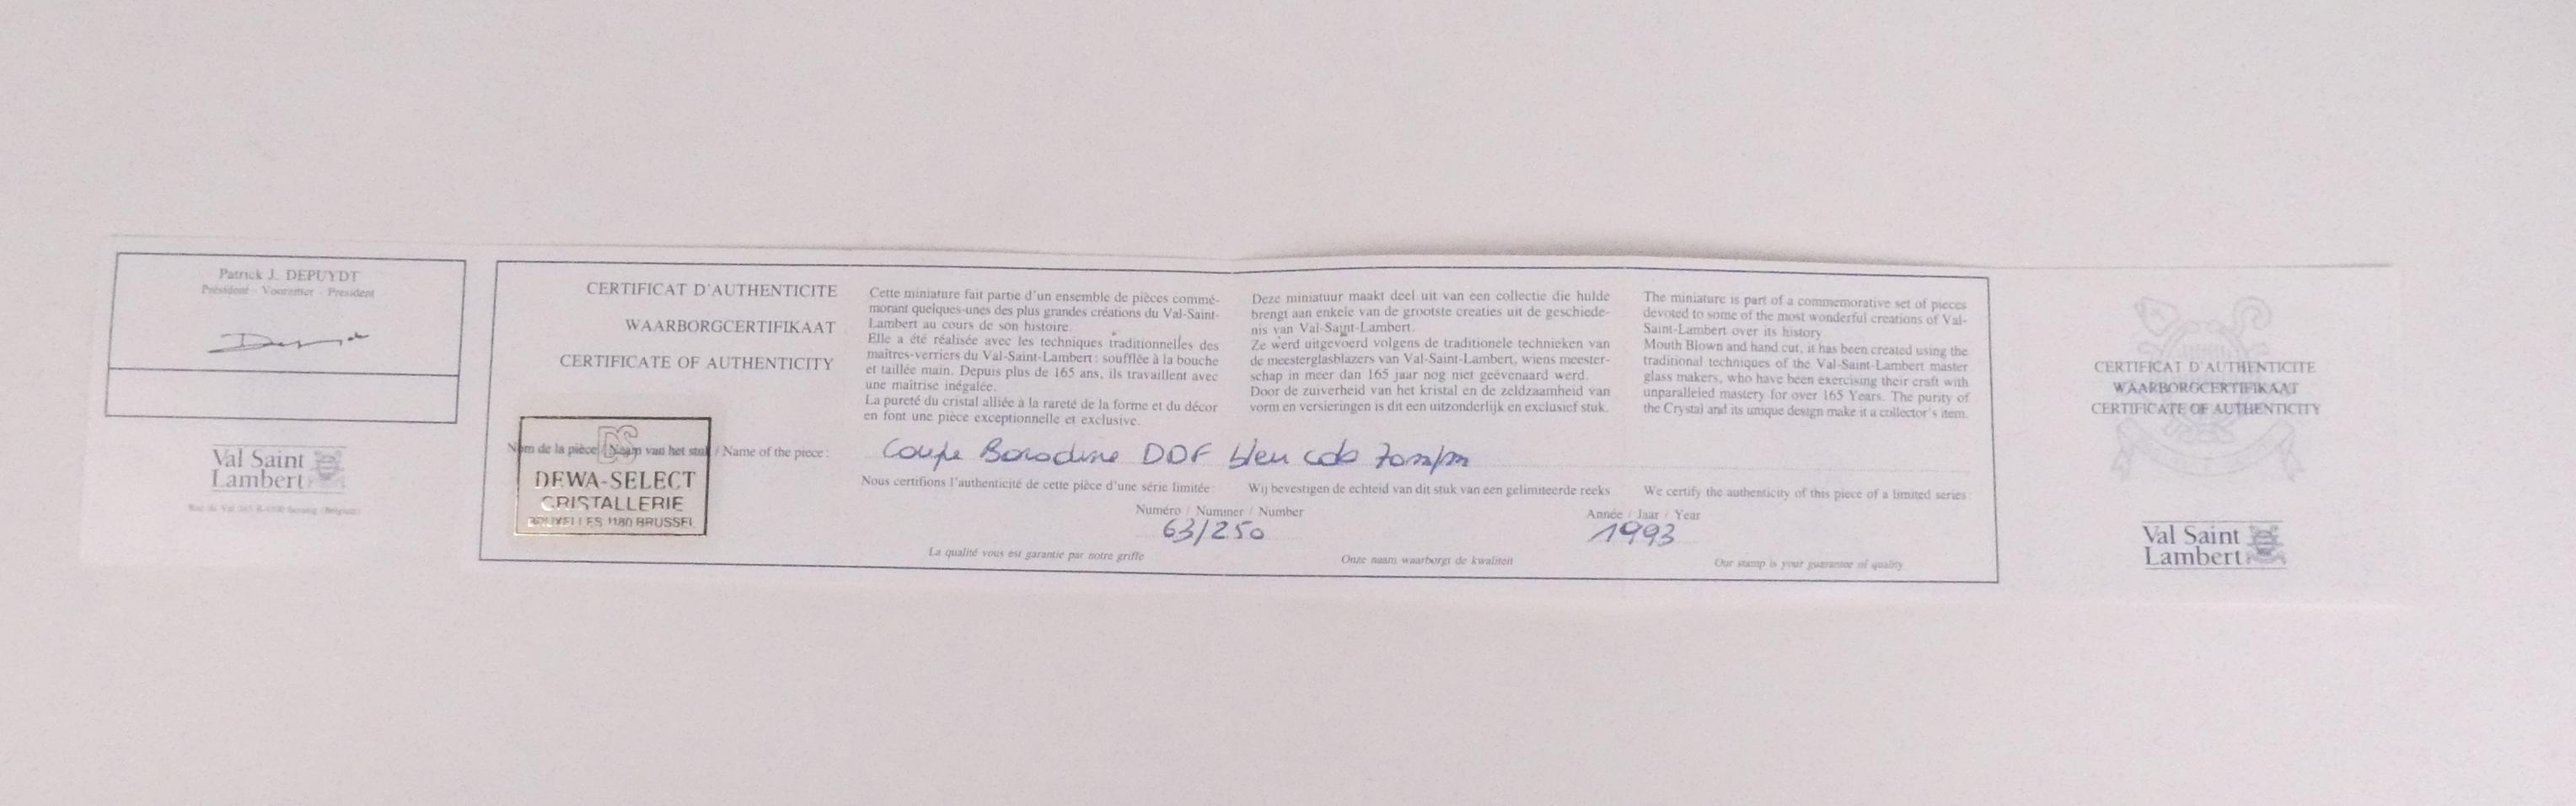 Patrick J. DEPUYDT
Président - Voorzitter - President
Val Saint
Lambert
CERTIFICAT D'AUTHENTICITE
WAARBORGCERTIFIKAAT
CERTIFICATE OF AUTHENTICITY
Cette miniature fait partie d'un ensemble de pièces commé-
morant quelques-unes des plus grandes créations du Val-Saint-
Lambert au cours de son histoire.
Elle a été réalisée avec les techniques traditionnelles des
maîtres-verriers du Val-Saint-Lambert : soufflée à la bouche
et taillée main. Depuis plus de 165 ans, ils travaillent avec
une maîtrise inégalée.
La pureté du cristal alliée à la rareté de la forme et du décor
en font une pièce exceptionnelle et exclusive.
Deze miniatuur maakt deel uit van een collectie die hulde
brengt aan enkele van de grootste creaties uit de geschiede-
nis van Val-Saint-Lambert.
Ze werd uitgevoerd volgens de traditionele technieken van
de meesterglasblazers van Val-Saint-Lambert, wiens meester-
schap in meer dan 165 jaar nog niet geëvenaard werd.
Door de zuiverheid van het kristal en de zeldzaamheid van
vorm en versieringen is dit een uitzonderlijk en exclusief stuk.
The miniature is part of a commemorative set of pieces
devoted to some of the most wonderful creations of Val-
Saint-Lambert over its history
Mouth Blown and hand cut, it has been created using the
traditional techniques of the Val-Saint-Lambert master
glass makers, who have been exercising their craft with
unparalleled mastery for over 165 Years. The purity of
the Crystal and its unique design make it a collector's item.
Nom de la pièce / Naam van het stuk / Name of the piece :
Coupe Borodine DOF bleu cob 70 m/m
DS
DEWA-SELECT
CRISTALLERIE
BRUXELLES 1180 BRUSSEL
Nous certifions l'authenticité de cette pièce d'une série limitée :
Wij bevestigen de echteid van dit stuk van een gelimiteerde reeks
We certify the authenticity of this piece of a limited series
Numéro / Nummer / Number
63/250
Année / Jaar / Year
1993
La qualité vous est garantie par notre griffe
Onze naam waarborgt de kwaliteit
Our stamp is your guarantee of quality
CERTIFICAT D'AUTHENTICITE
WAARBORGCERTIFIKAAT
CERTIFICATE OF AUTHENTICITY
Val Saint
Lambert